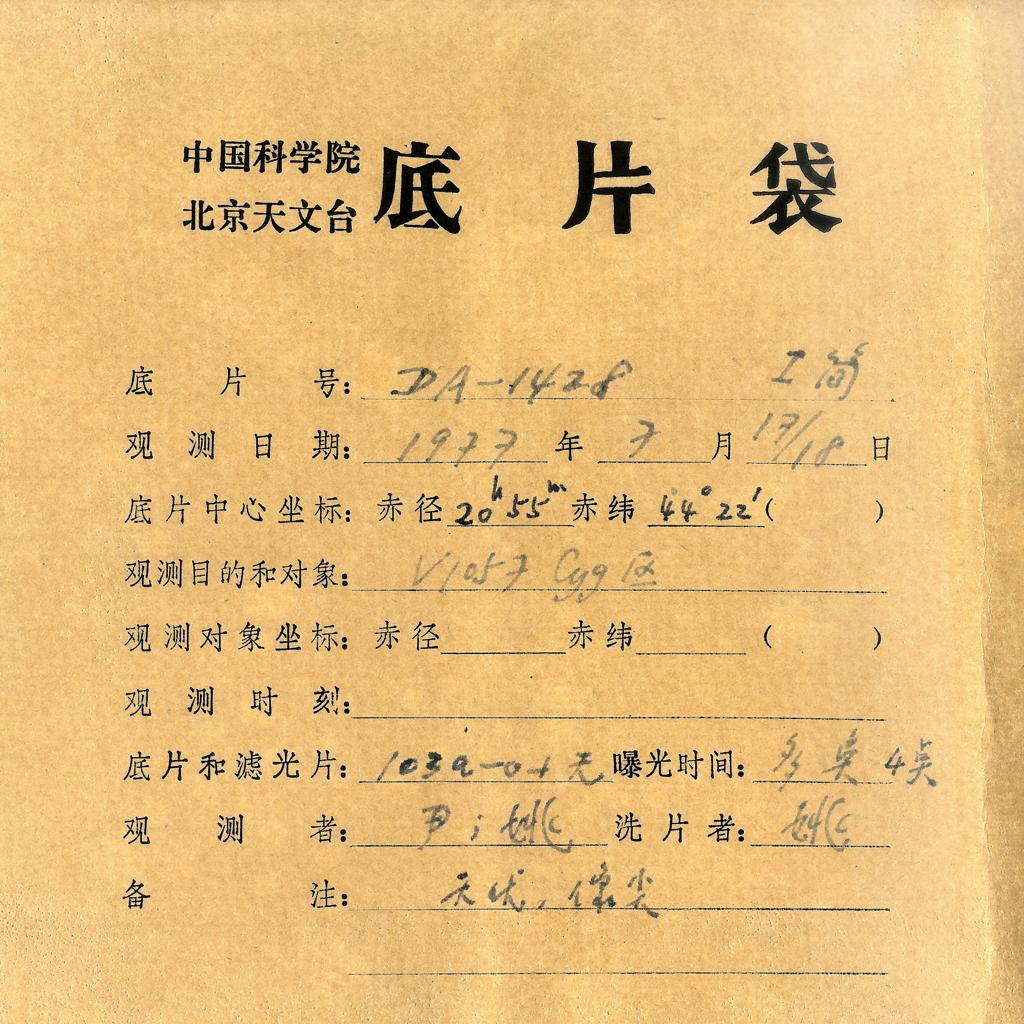 中国科学院
北京天文台 底片袋
底片号: DA-1428 I简
观测日期: 1977年 7月 17/18日
底片中心坐标: 赤径 20h55m 赤纬 44°22′( )
观测目的和对象: V1057 Cyg 区
观测对象坐标: 赤径 赤纬 ( )
观测时刻:
底片和滤光片: 103a-O+无 曝光时间: 多 4
观测者: 尹; 姚 洗片者: 姚
备注: 天优, 像尖